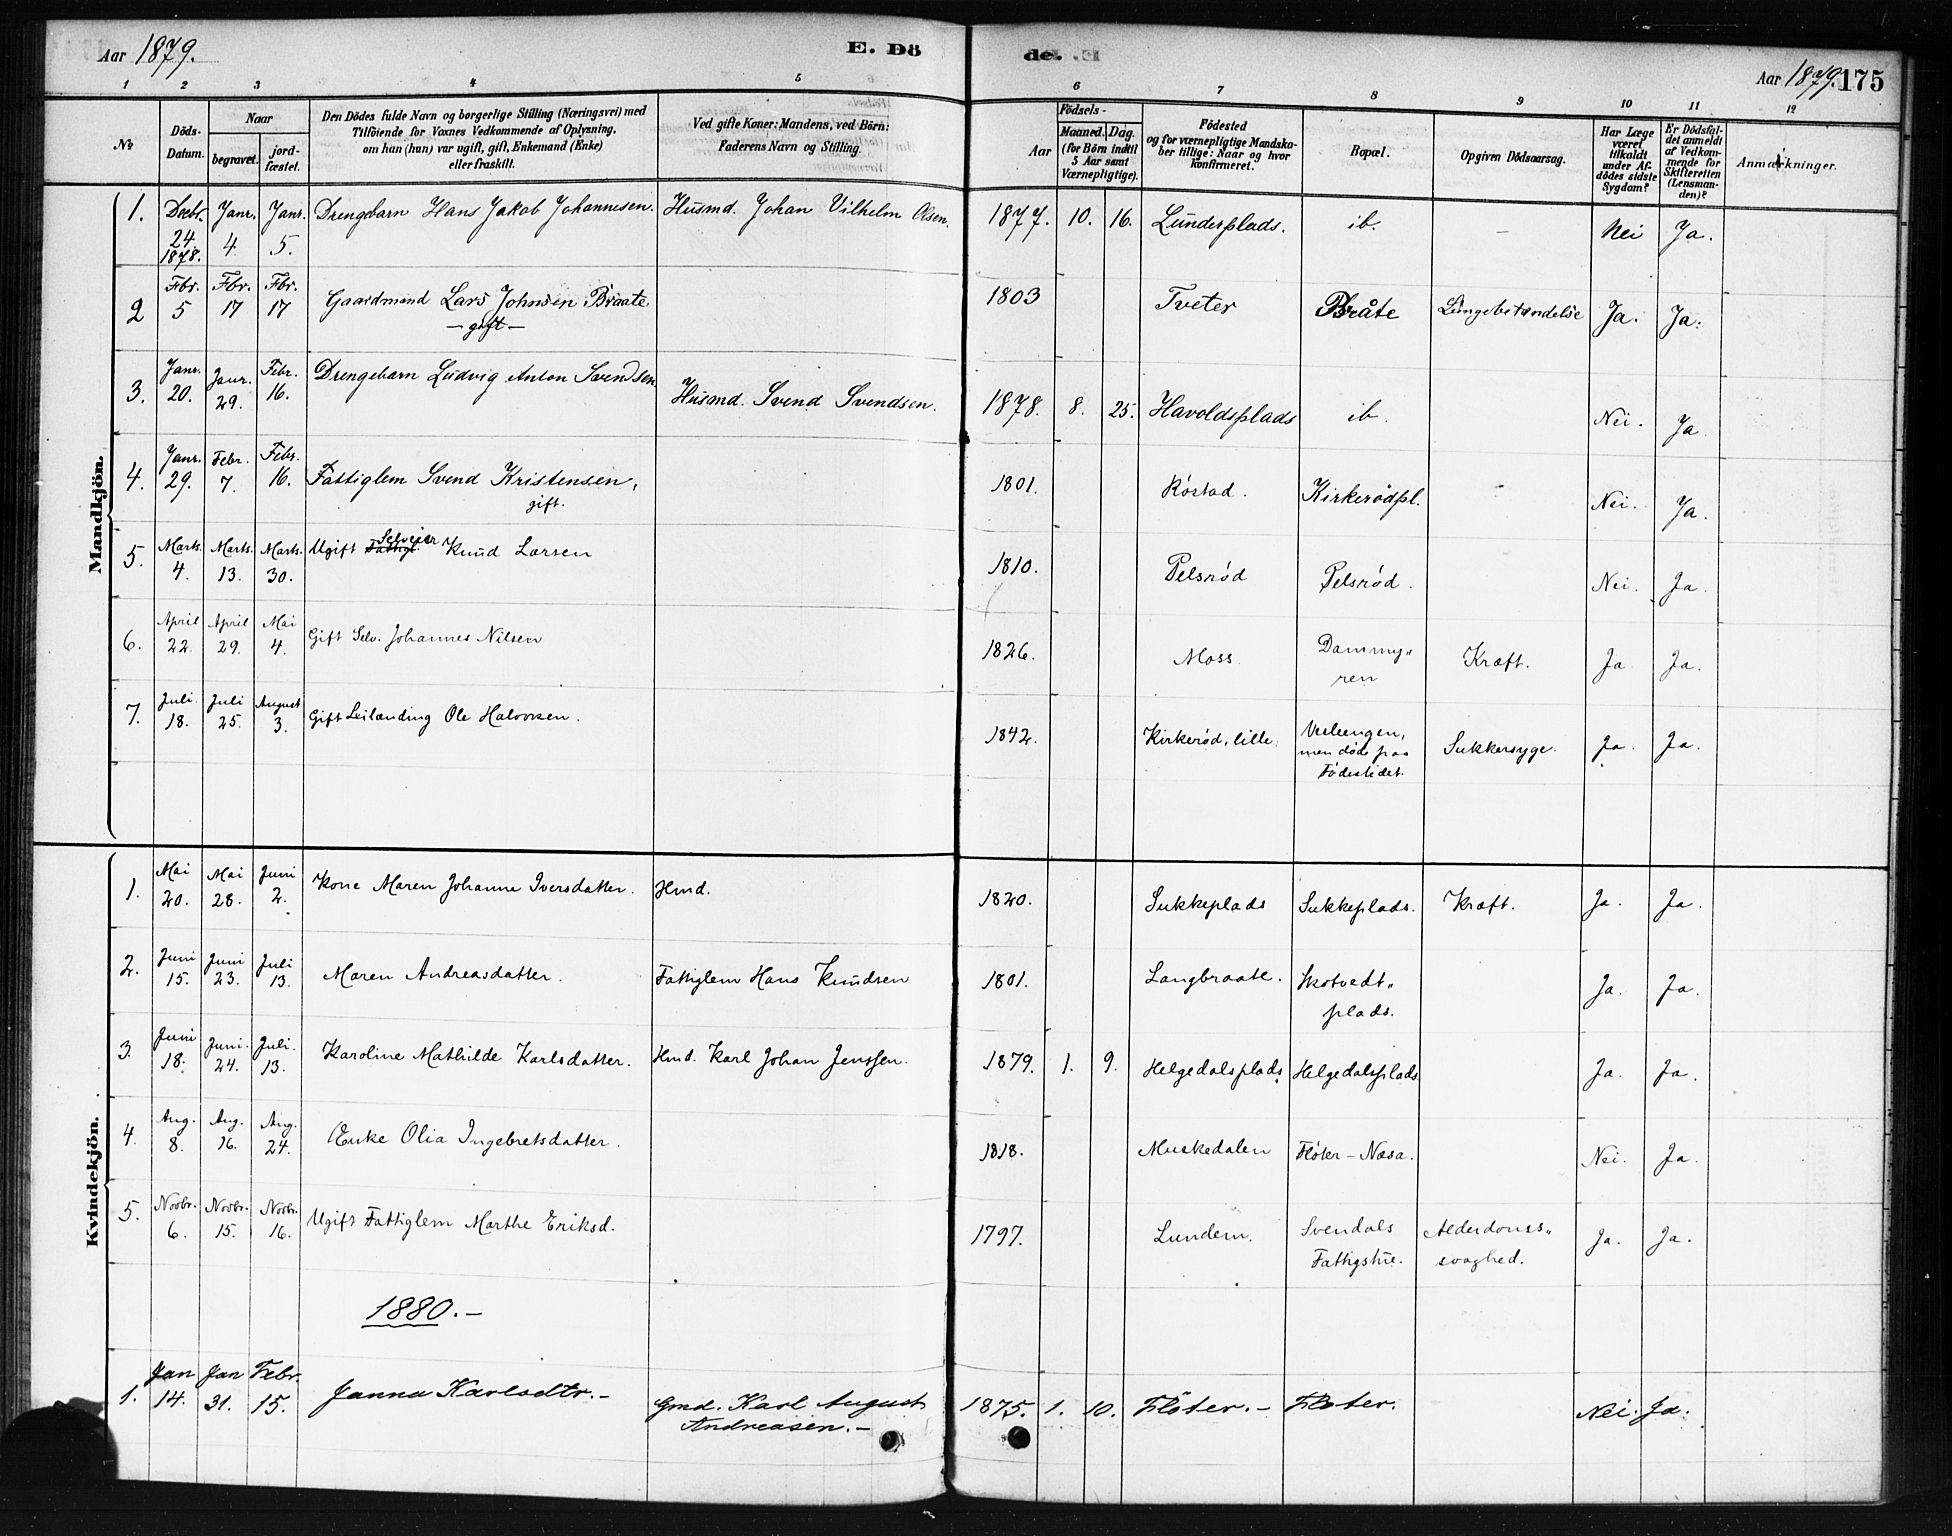 Aar 1879.
E. Dö
de.
Aar 1879. 175
1 2 3 4 5 6 7 8 9 10 11 12
No
Döds-Datum.
Naar
begravet.
jord-fæstet.
Den Dödes fulde Navn og borgerlige Stilling (Næringsvei) med
Tilföiende for Voxnes Vedkommende af Oplysning,
om han (hun) var ugift, gift, Enkemand (Enke)
eller fraskilt.
Ved gifte Koner: Mandens, ved Börn:
Faderens Navn og Stilling.
Födsels-
Aar
Maaned. Dag.
(for Börn indtil
5 Aar samt
Værnepligtige).
Födested
og for værnepligtige Mandska-
ber tillige: Naar og hvor
konfirmeret.
Bopæl.
Opgiven Dödsaarsag.
Har Læge
været
tilkaldt
under Af-
dödes sidste
Sygdom?
Er Dödsfal-
det anmeldt
af Vedkom-
mende for
Skifteretten
(Lensman-
den)?
Anmærkninger.
Mandkjön.
1. Decbr. 24. 1878. Janr. 4. Janr. 5. Drengebarn Hans Jakob Johannesen. Husmd. Johan Vilhelm Olsen. 1877. 10. 16. Lunderplads. ib. – Nei Ja.
2 Fbr. 5 Fbr. 17 Fbr. 17 Gaardmand Lars Johnsen Braate
– gift – 1803 Tveter Bråte Lungebetændelse Ja. Ja.
3. Janr. 20. Janr. 29. Febr. 16. Drengebarn Ludvig Anton Svendsen Husmd. Svend Svendsen. 1878. 8. 25. Havoldsplads ib. Nei. Ja.
4. Janr. 29. Febr. 7. Febr. 16. Fattiglem Svend Kristensen,
gift. 1801. Röstad. Kirkerödpl. Nei. Ja.
5. Marts. 4. Marts. 13. Marts. 30. Ugift Fattigl. Selveier Knud Larsen 1810. Pelsröd Pelsröd. Nei. Ja.
6. April 22. April 29. Mai 4. Gift Selv. Johannes Nilsen 1826. Moss. Dammy„
ren Kræft. Ja Ja.
7. Juli. 18. Juli 25. August 3. Gift Leilænding Ole Halvorsen. 1842. Kirkeröd, lille.
men döde paa
Födestedet. Sukkersyge. Ja. Ja.
Kvindekjön.
1. Mai 20. Mai 28. Juni 2. Kone Maren Johanne Iversdatter. Hmd. 1820. Sukkeplads Sukkeplads. Kræft. Ja. Ja.
2. Juni 15. Juni 23. Juli 13. Maren Andreasdatter. Fattiglem Hans Knudsen 1801. Langbraate. Skotvedt„
plads. Ja. Ja.
3. Juni 18. Juni. 24. Juli. 13. Karoline Mathilde Karlsdatter. Hmd. Karl Johan Jenssen. 1879. 1. 9. Helgedalsplads. Helgedalsplads Ja. Ja.
4. Aug. 8. Aug. 16. Aug. 24. Enke Olia Ingebretsdatter. 1818. Muskedalen Flöter – Næsa. Nei. Ja.
5. Novbr. 6. Novbr. 15. Novbr. 16. Ugift Fattiglem Marthe Eriksd. 1797. Lundem. Svendals
Fattigstue. Alderdoms„
svaghed. Ja. Ja.
1880. –
1. Jan 14. Jan 31. Febr. 15. Janna Karlsdtr. – Gmd. Karl August
Andreasen. – 1875. 1. 10. Flöter. – Flöter. Nei. Ja.